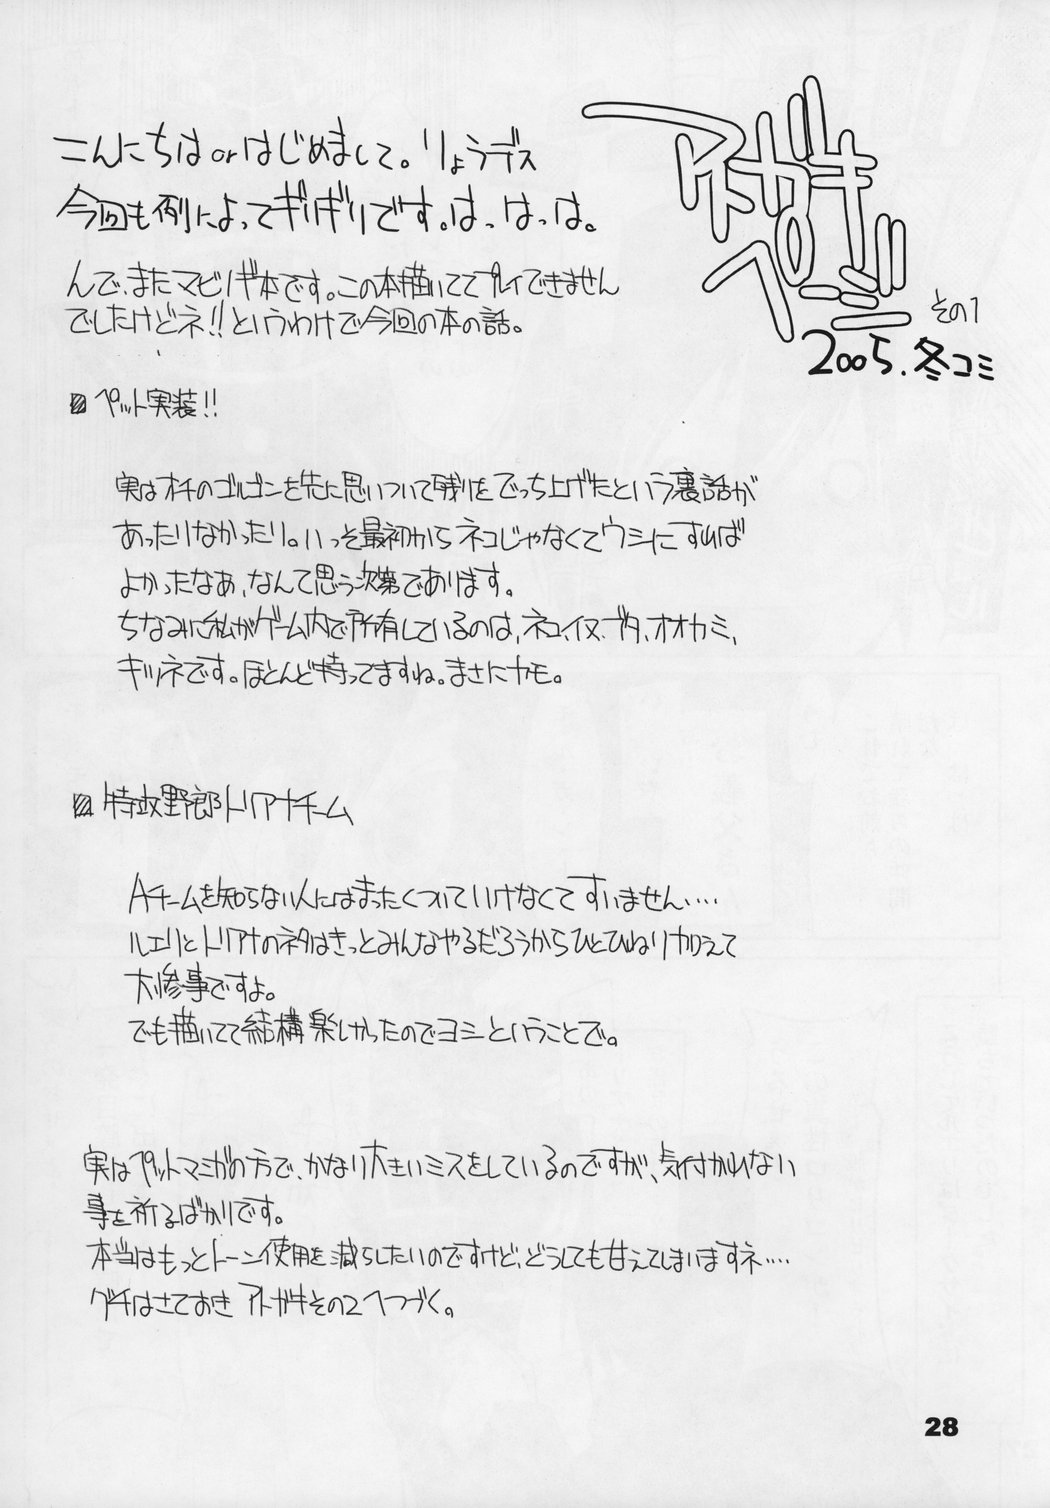 アトがき
ぺーじ
その1
2005.冬コミ
こんにちはorはじめまして。りょうデス
今回も例によってギリギリです。はっはっは。
んで、またマビノギ本です。この本描いててプレイできません
でしたけどネ!!というわけで今回の本の話。
ペット実装!!
実はオチのゴルゴンを先に思いついて残りをでっち上げたという裏話が
あったりなかったり。いっそ最初からネコじゃなくてウシにすれば
よかったなあ、なんて思う次第であります。
ちなみに私がゲーム内で所有しているのは、ネコ、イヌ、ブタ、オオカミ、
キツネです。ほとんど持ってますね。まさにカモ。
特攻野郎トリアナチーム
Aチームを知らない人にはまったくついていけなくてすいません‥‥
ルエリとトリアナのネタはきっとみんなやるだろうからひとひねり加えて
大惨事ですよ。
でも描いてて結構楽しかったのでヨシということで。
実はペットマンガの方で、かなり大きいミスをしているのですが、気付かれない
事を祈るばかりです。
本当はもっとトーン使用を減らしたいのですけど、どうしても甘えてしまいますネ‥‥
グチはさておきアトガキその2へつづく。
28